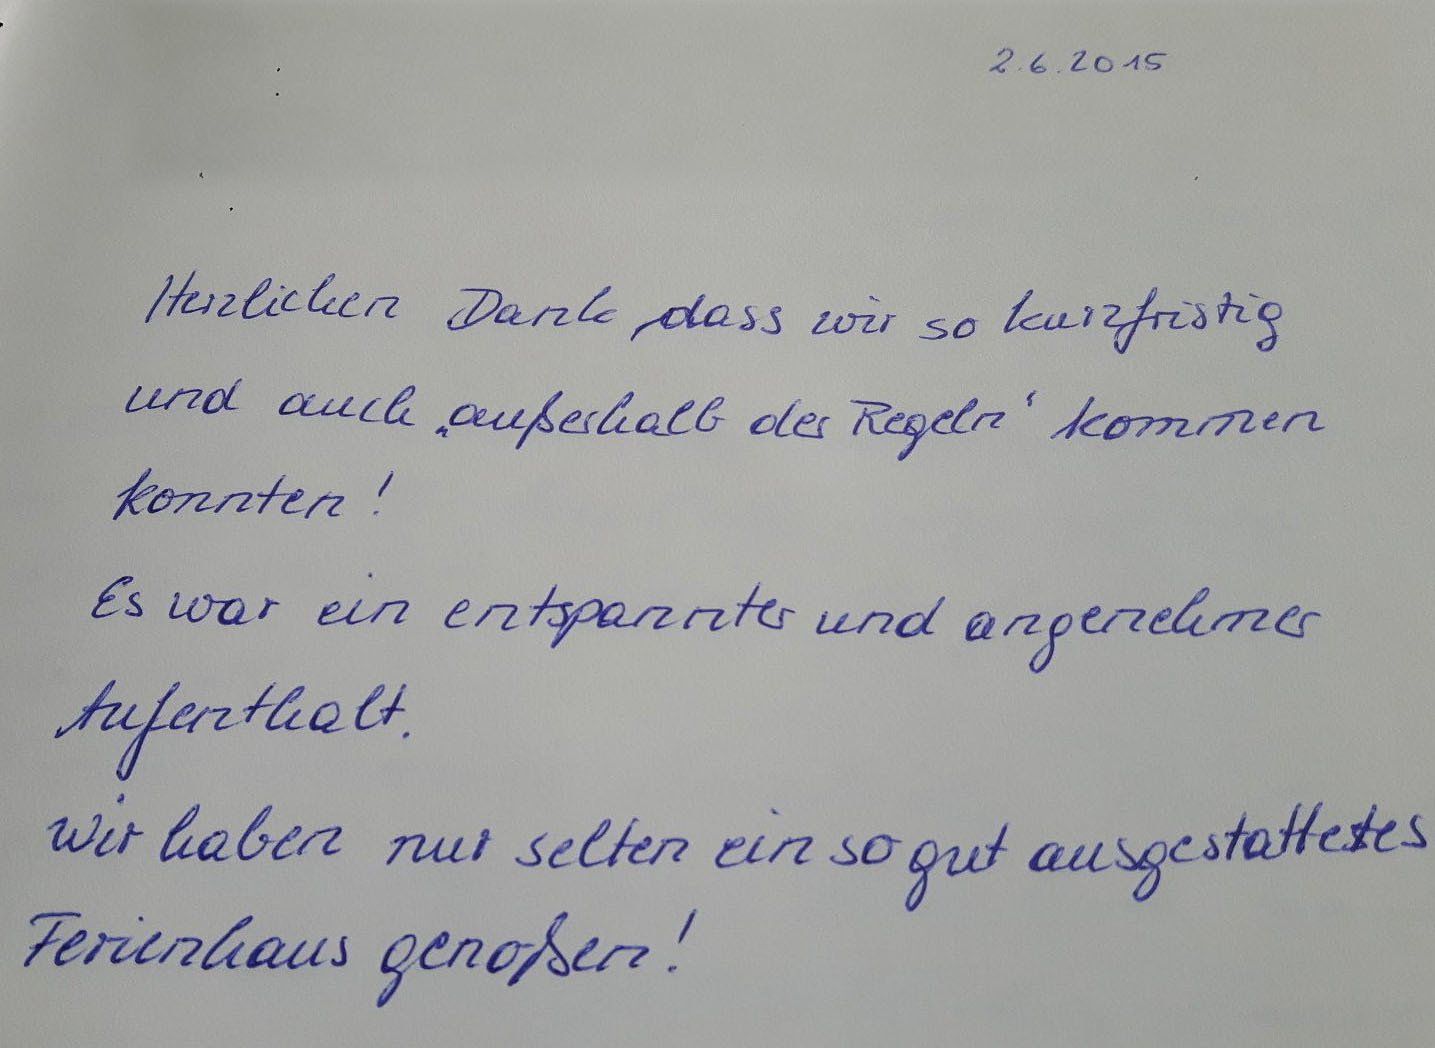 2.6.2015
Herzlichen Dank, dass wir so kurzfristig
und auch „außerhalb der Regeln‘ kommen
konnten!
Es war ein entspannter und angenehmer
Aufenthalt.
Wir haben nur selten ein so gut ausgestattetes
Ferienhaus genoßen!